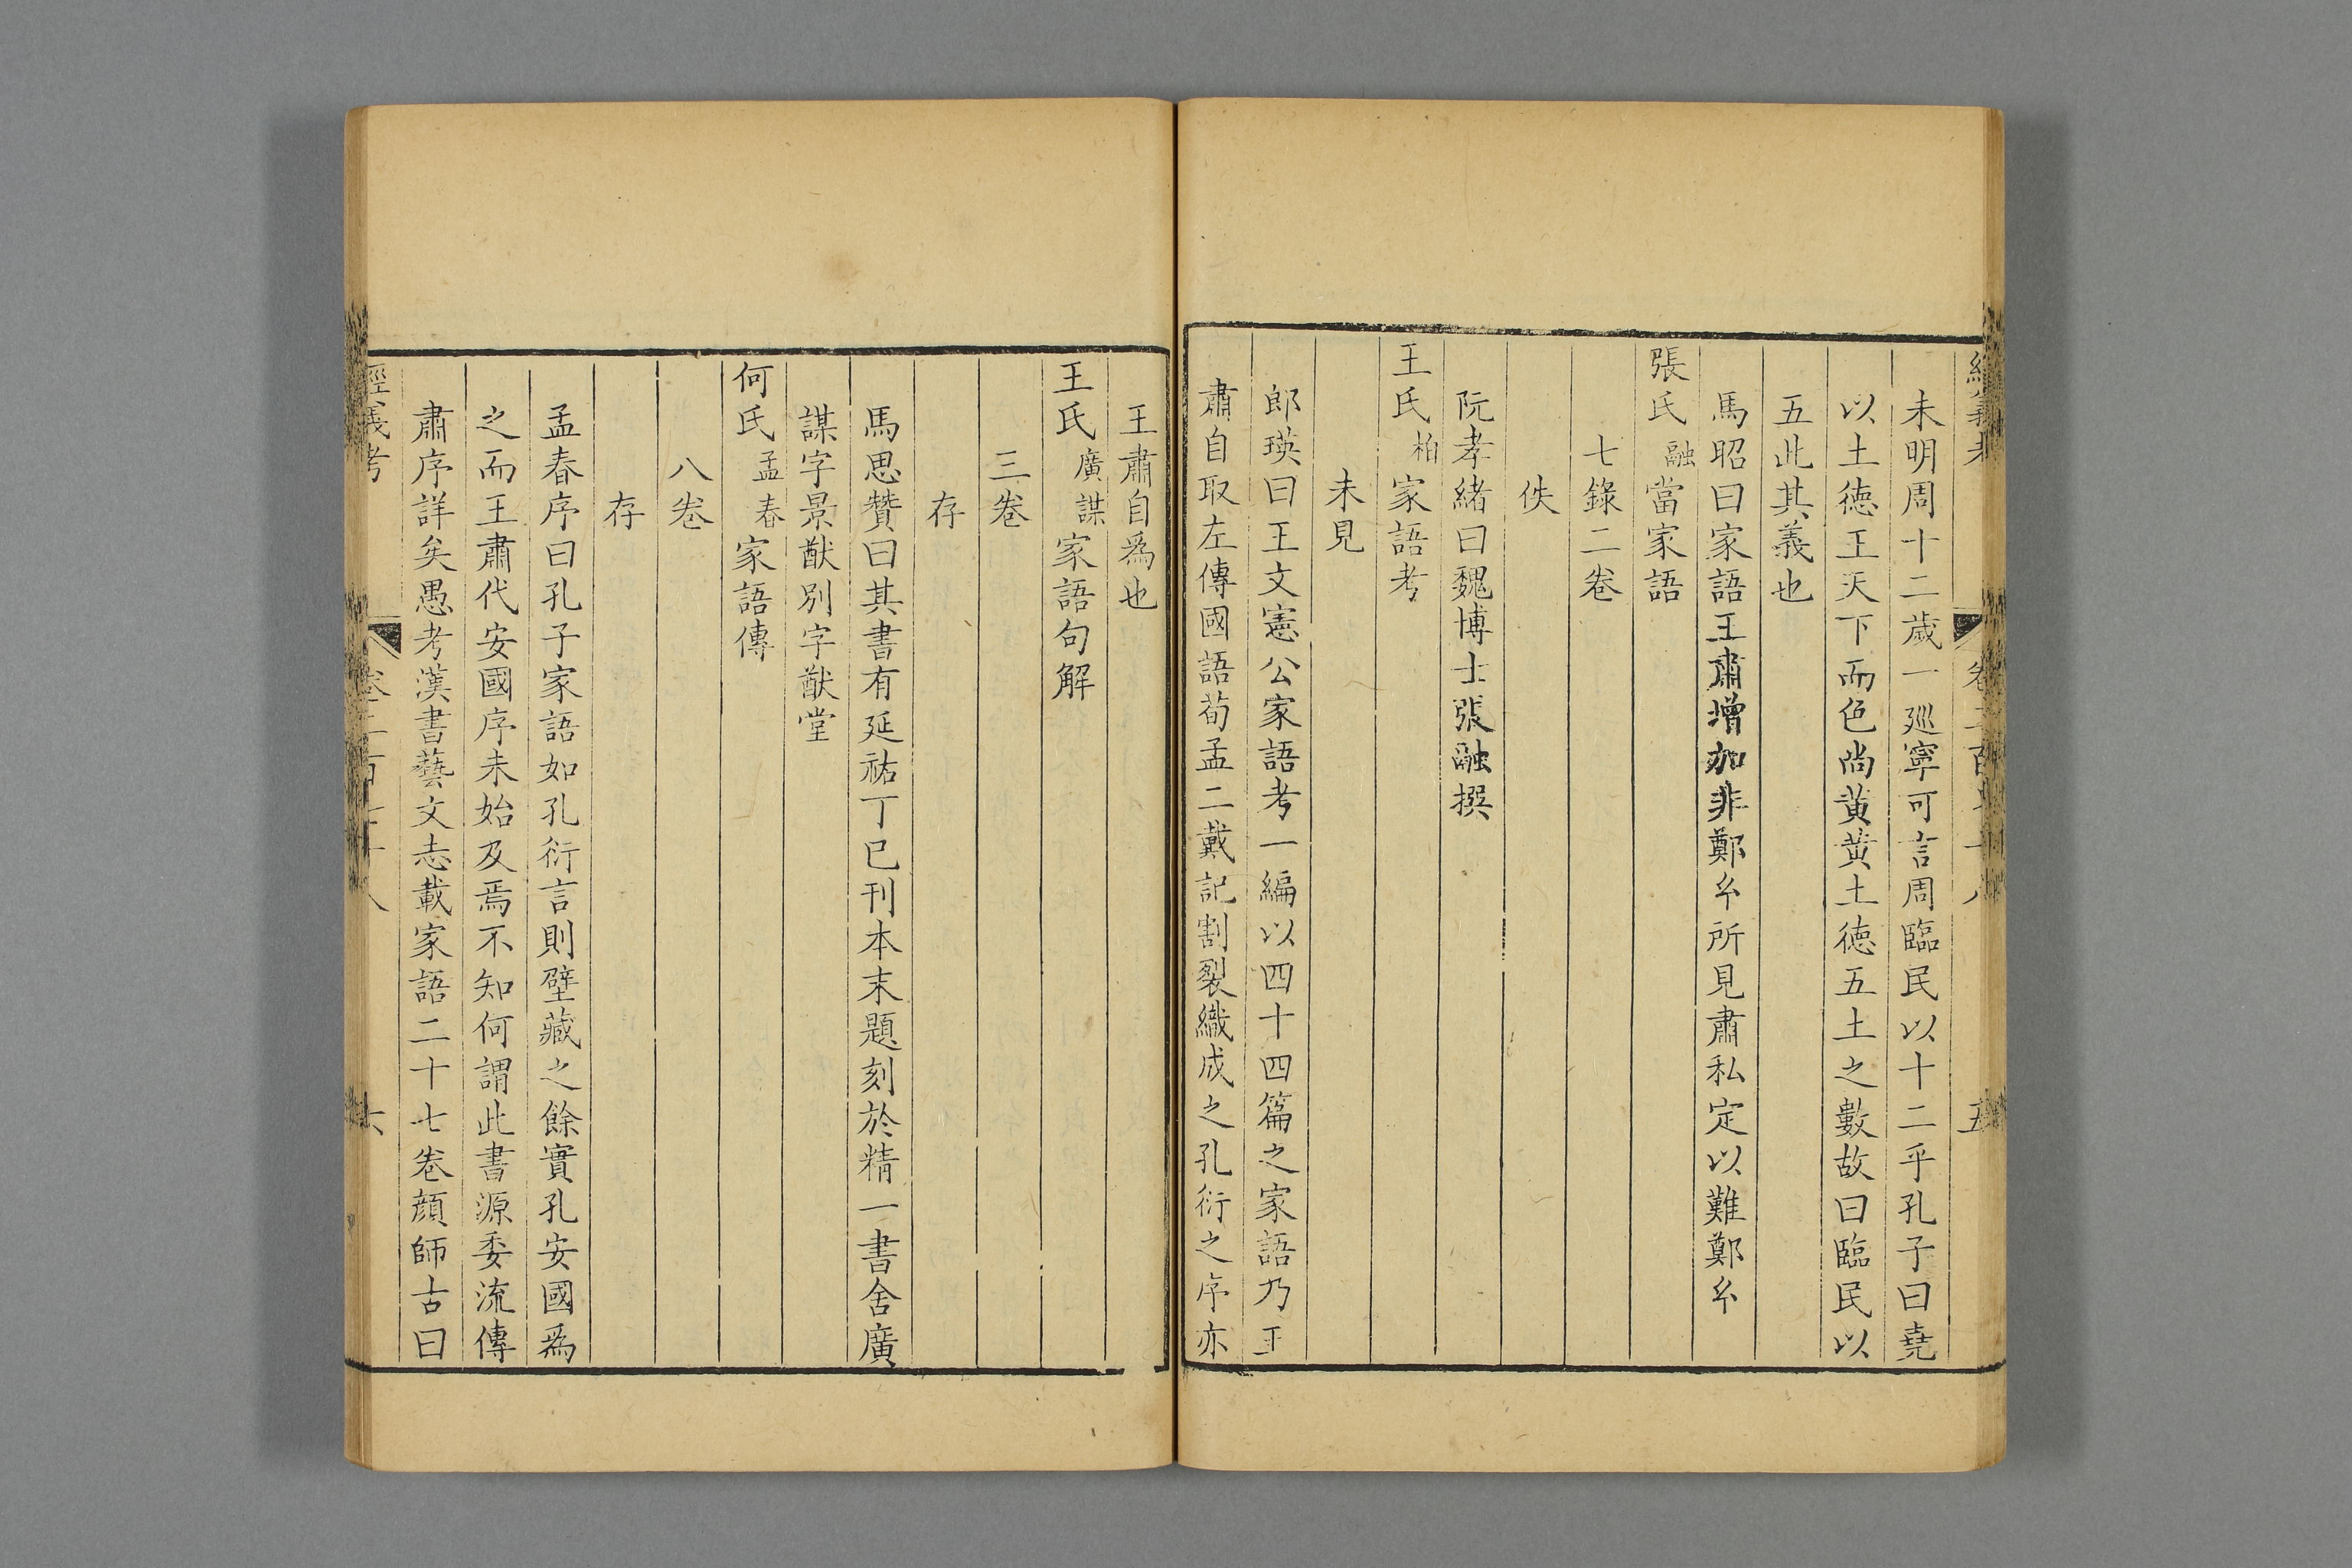 未明周十二歲一廵寧可言周臨民以十二乎孔子曰堯
以土徳王天下而色尚黄黄土徳五土之數故曰臨民以
五此其義也
馬昭曰家語王肅增加非鄭𤣥所見肅私定以難鄭𤣥
張氏融當家語
七錄二卷
佚
阮孝緒曰魏博士張融撰
王氏柏家語考
未見
郎瑛曰王文憲公家語考一編以四十四篇之家語乃王
肅自取左傳國語荀孟二戴記割裂織成之孔衍之序亦
王肅自爲也
王氏廣謀家語句解
三卷
存
馬思贊曰其書有延祐丁巳刊本末題刻於精一書舍廣
謀字景猷別字猷堂
何氏孟春家語傳
八卷
存
孟春序曰孔子家語如孔衍言則壁藏之餘實孔安國為
之而王肅代安國序未始及焉不知何謂此書源委流傳
肅序詳矣愚考漢書藝文志載家語二十七卷顔師古曰
經義考
六